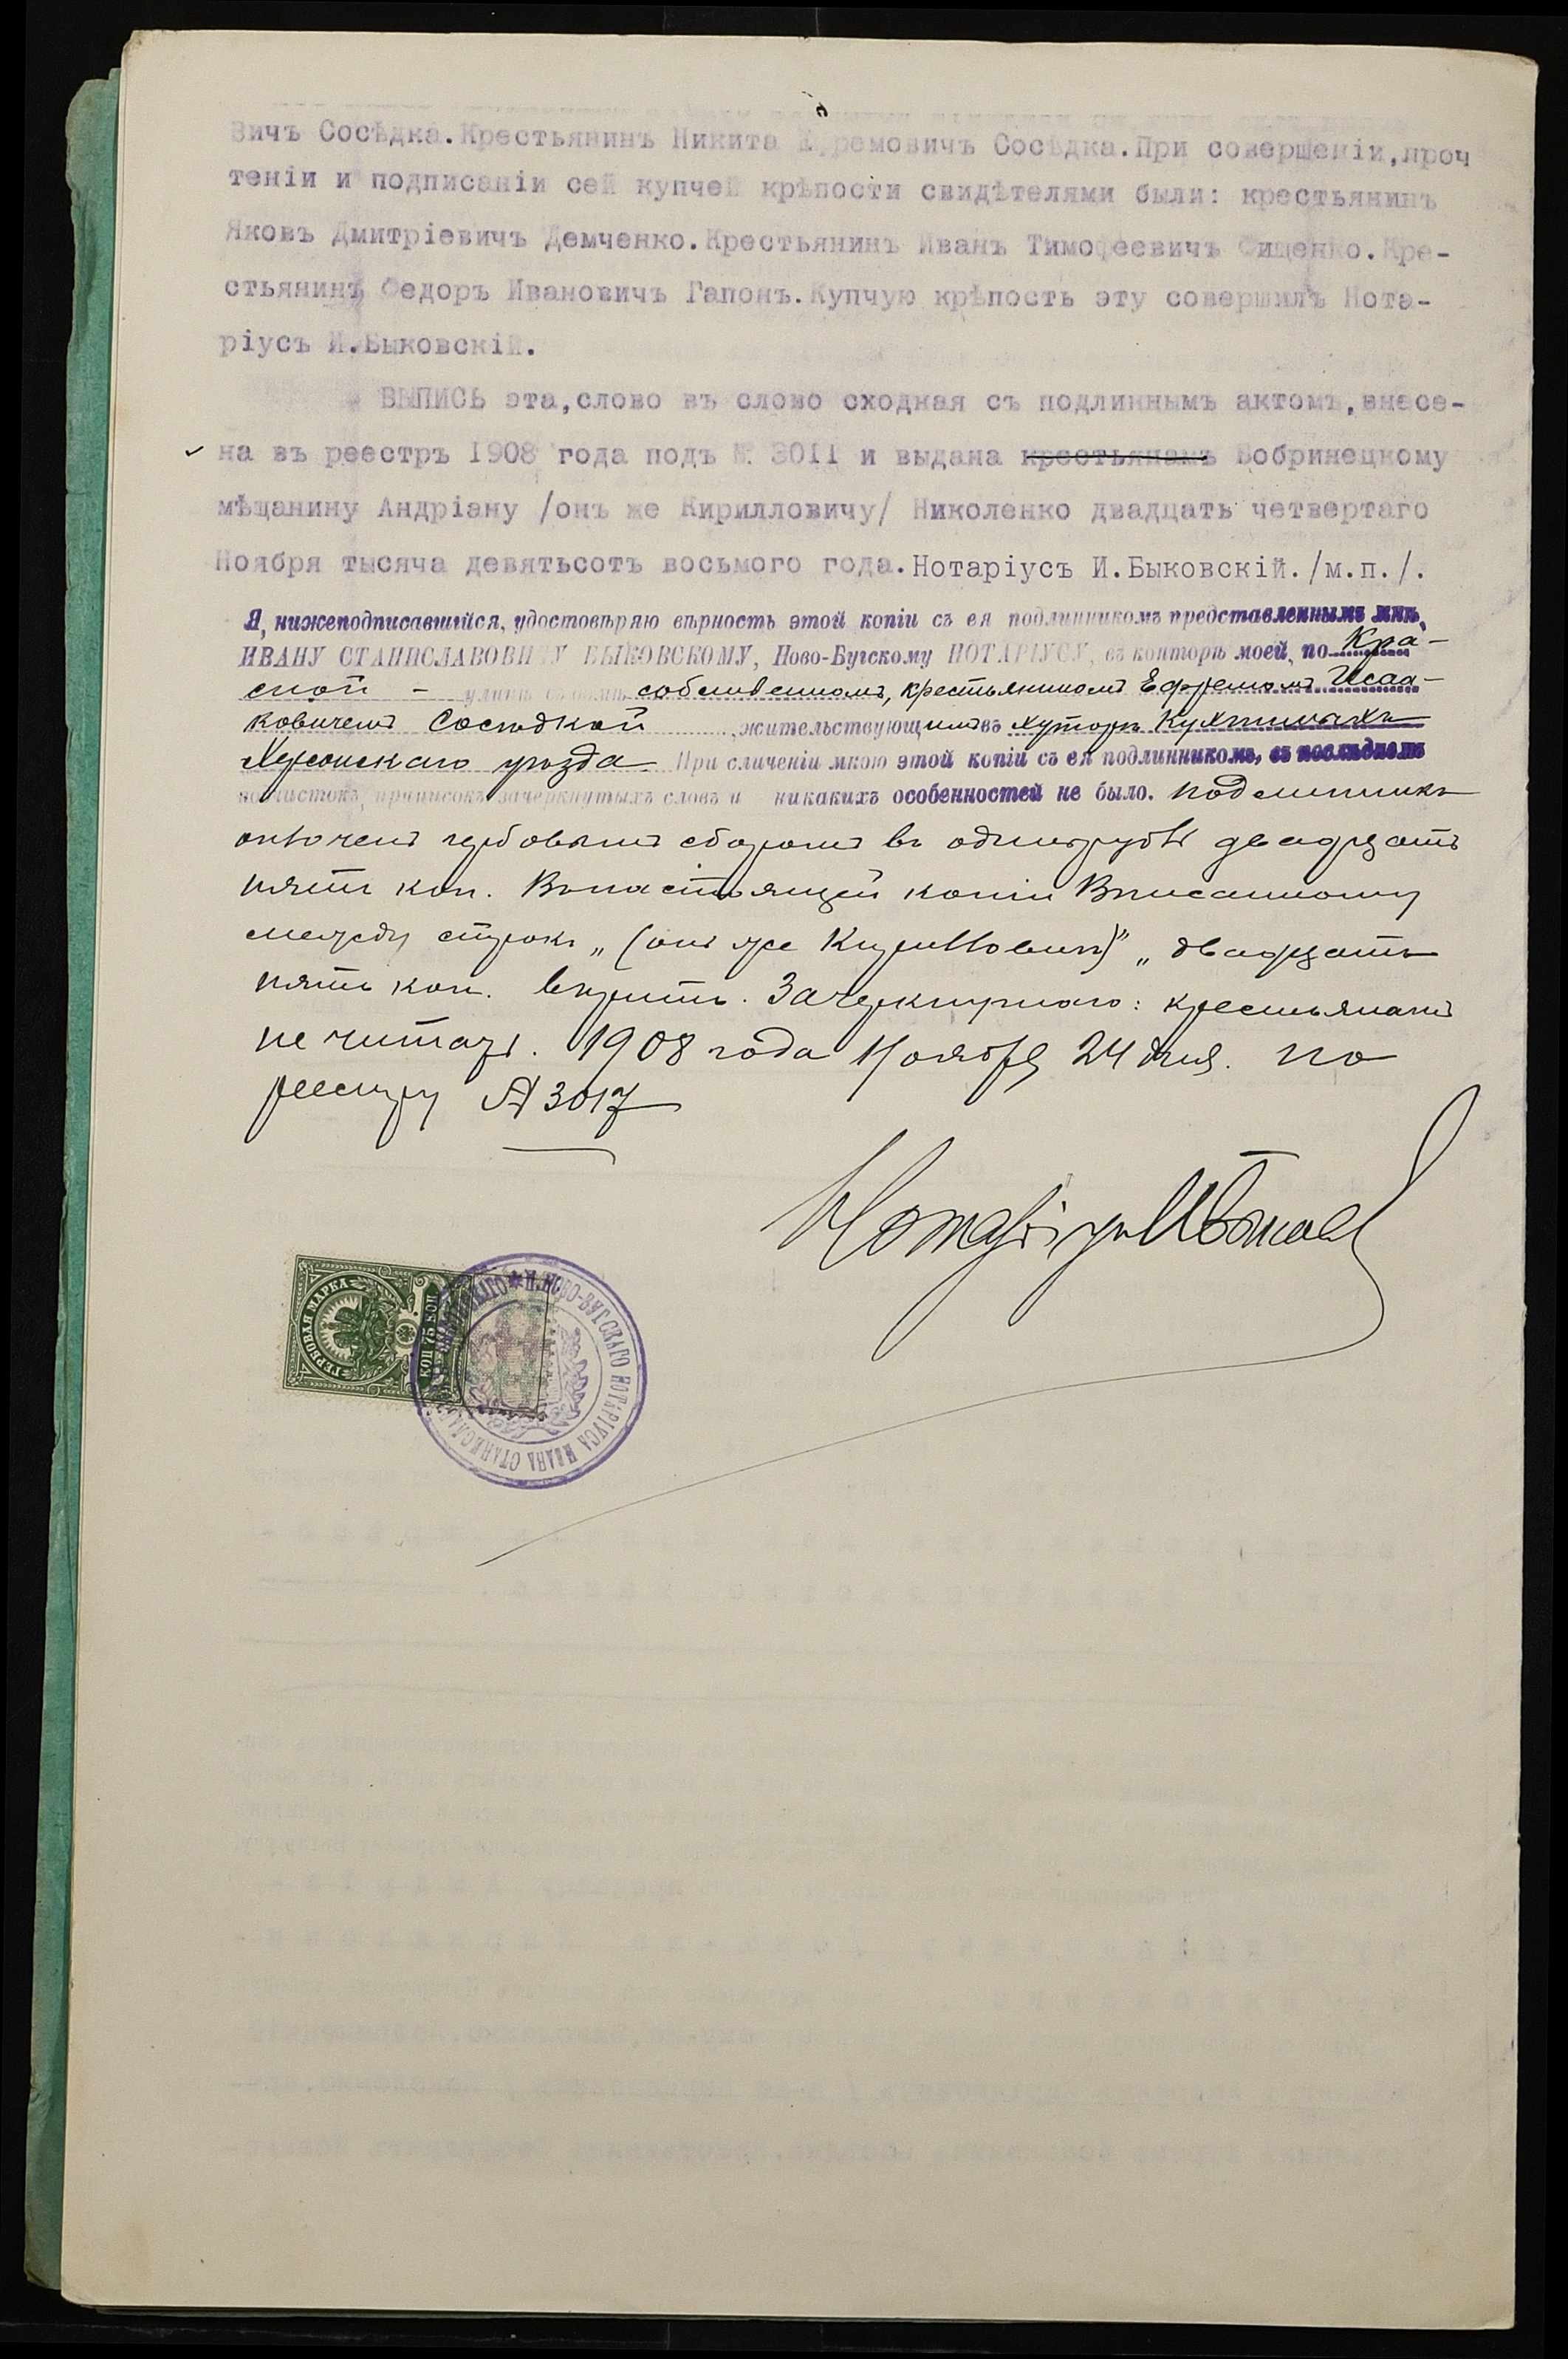 вичъ Сосѣдка.Крестьянинъ Никита Ефремовичъ Сосѣдка.При совершеніи,проч
теніи и подписаніи сей купчей крѣпости свидѣтелями были: крестьянинъ
Яковъ Дмитріевичъ Демченко.Крестьянинъ Иванъ Тимофеевичъ Фищенко.Кре-
стьянинъ Федоръ Ивановичъ Гапонъ.Купчую крѣпость эту совершилъ Нота-
ріусъ И.Быковскій.
ВЫПИСЬ эта,слово въ слово сходная съ подлиннымъ актомъ,внесе-
на въ реестръ 1908 года подъ № 3011 и выдана крестьянамъ Бобринецкому
мѣщанину Андріану /онъ же Кирилловичу/ Николенко двадцать четвертаго
Ноября тысяча девятьсотъ восьмого года.Нотаріусъ И.Быковскій./м.п./.
Я, нижеподписавшійся, удостовѣряю вѣрность этой копіи съ ея подлинникомъ представленнымъ мнѣ,
ИВАНУ СТАНИСЛАВОВИЧУ БЫКОВСКОМУ, Ново-Бугскому НОТАРІУСУ, въ конторѣ моей, по Кра-
сной - улицѣ въ домѣ собственномъ, крестьяниномъ Ефремомъ Исаа-
ковичемъ Сосѣдкой жительствующимъ въ хуторѣ
Херсонскаго уѣзда При сличеніи мною этой копіи съ ея подлинникомъ, въ послѣднемъ
подчистокъ, приписокъ зачеркнутыхъ словъ и никакихъ особенностей не было. Подлинникъ
оплоченъ гербовымъ сборомъ въ одинъ рубль двадцать
пять коп. Въ настоящей копіи Вписанному
между строкъ „(онъ же Кирилловичъ)" „двадцать
пять коп. вѣрить. Зачеркнутаго: крестьянамъ
не читать. 1908 года Ноября 24 дня. По
реестру № 3017
Нотаріусъ И Быков
ГЕРБОВАЯ МАРКА
КОП 75 КОП
Н.НОВО-БУГСКАГО НОТАРІУСА ИВАНА СТАНИСЛАВОВИЧА БЫКОВСКАГО